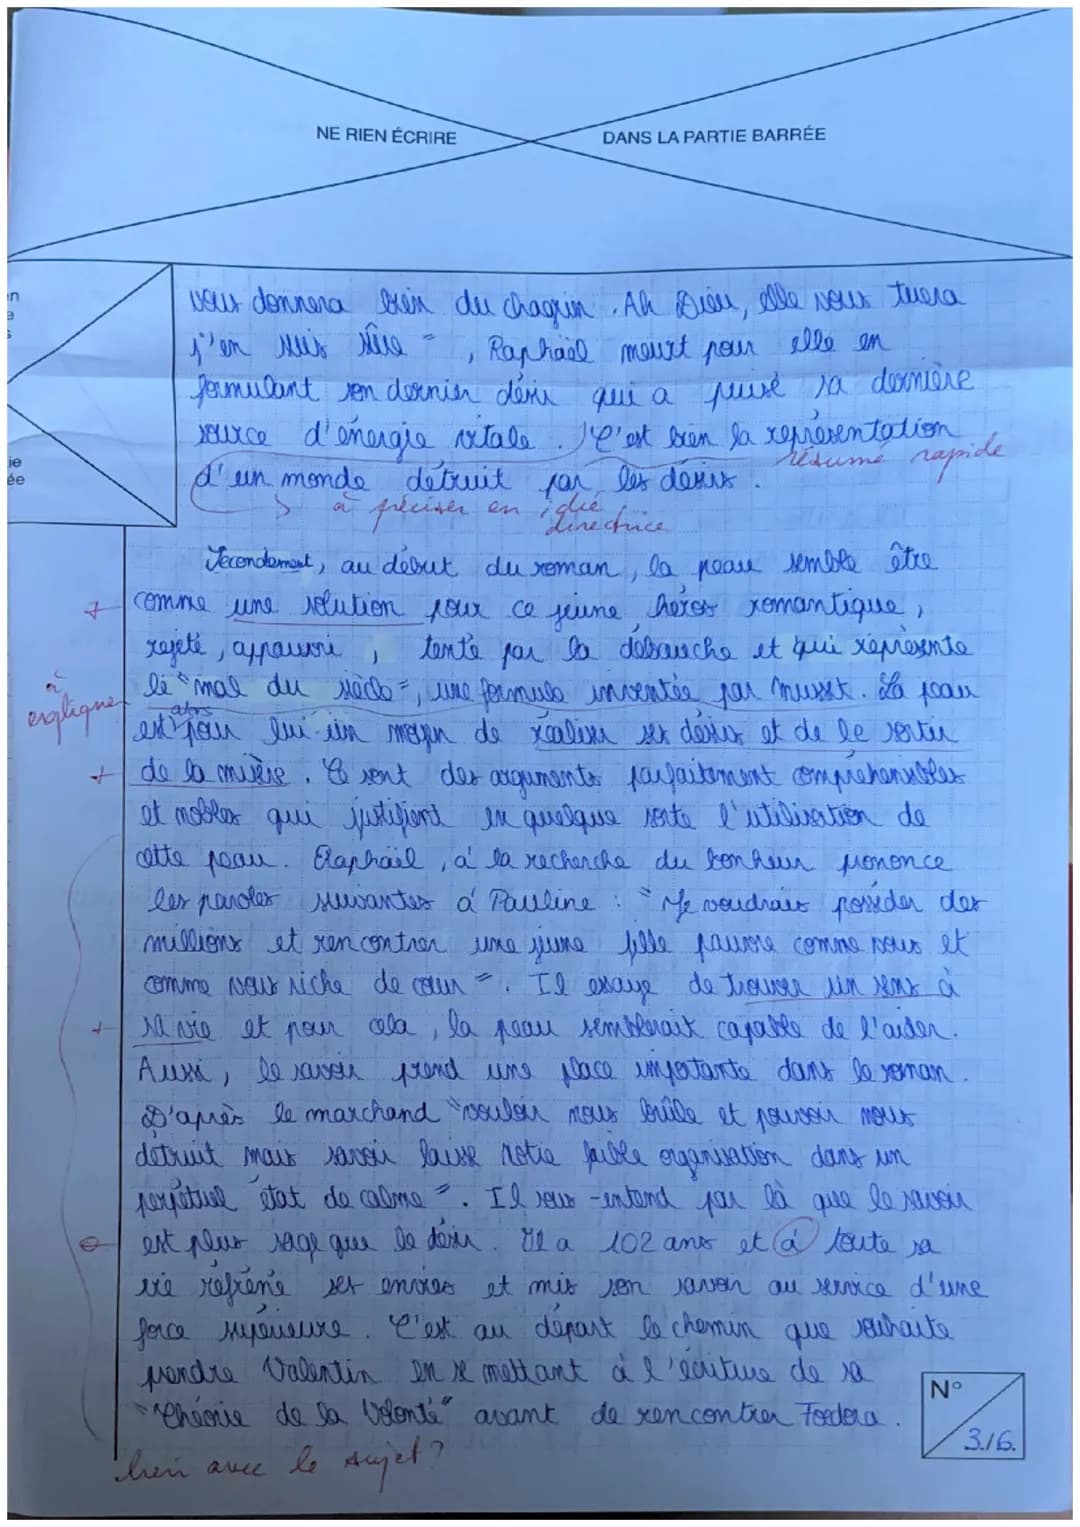 NE RIEN ÉCRIRE DANS LA PARTIE BARRÉE
vous donnera bien du chagrin. Ah Dieu, elle vous tuera
j'en suis sûre", Raphaël meurt pour elle en
formulant son dernier désir qui a puisé sa dernière
source d'énergie vitale. C'est bien la représentation
résumé rapide
d'un monde détruit par les désirs.
à préciser en idée
directrice
Secondement, au début du roman, la peau semble être
+ comme une solution pour ce jeune héros romantique,
rejeté, appauvri, tenté par la débauche et qui représente
à
le "mal du siècle", une formule inventée par Musset. La peau
expliquer
alors
est pour lui un moyen de réaliser ses désirs et de le sortir
+ de la misère. Ce sont des arguments parfaitement compréhensibles
et nobles qui justifient en quelque sorte l'utilisation de
cette peau. Raphaël, à la recherche du bonheur prononce
les paroles suivantes à Pauline : "Je voudrais posséder des
millions et rencontrer une jeune fille pauvre comme vous et
comme vous riche de cœur". Il essaye de trouver un sens à
+ sa vie et pour cela, la peau semblerait capable de l'aider.
Aussi, le savoir prend une place importante dans le roman.
D'après le marchand "vouloir nous brûle et pouvoir nous
détruit mais savoir laisse notre faible organisation dans un
perpétuel état de calme". Il sous-entend par là que le savoir
est plus sage que le désir. Il a 102 ans et à toute sa
vie réfréné ses envies et mis son savoir au service d'une
force supérieure. C'est au départ le chemin que souhaite
prendre Valentin en se mettant à l'écriture de sa
"Théorie de la Volonté" avant de rencontrer Foedora.
N°
3./6.
lien avec le sujet?